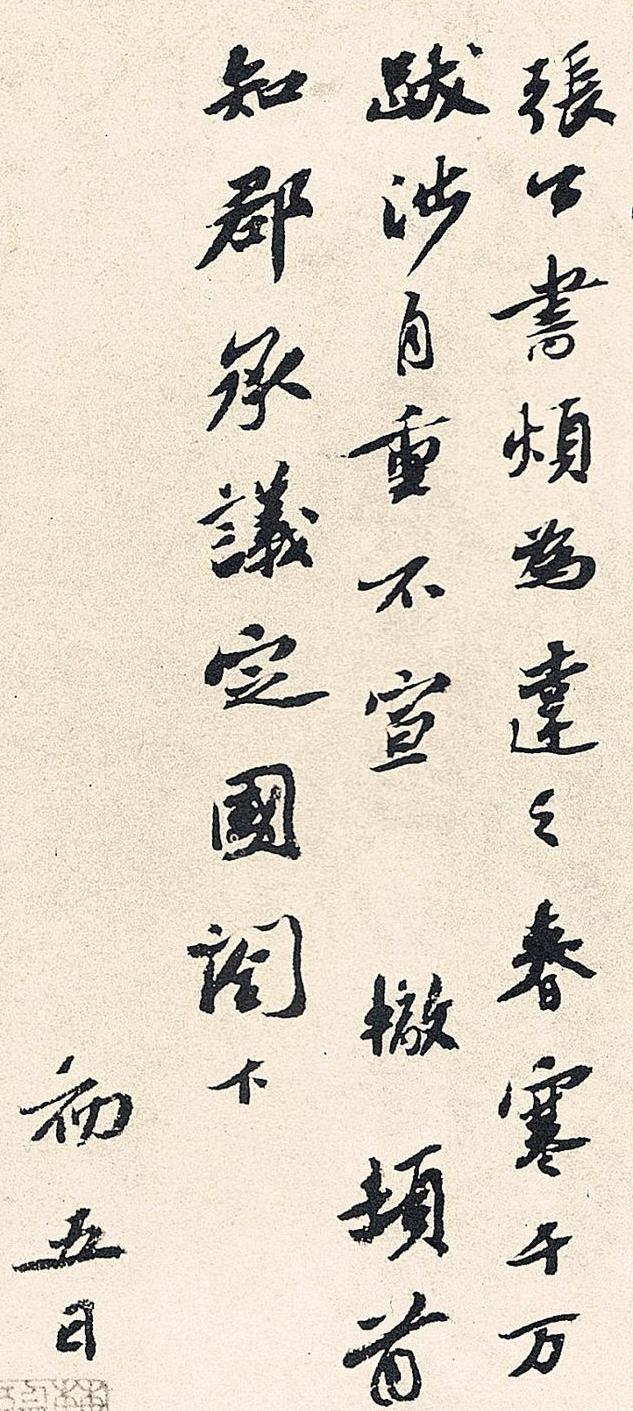 張公書煩為達之春寒千万
跋涉自重不宣 轍 頓首
知郡承議定國閣下
初五日